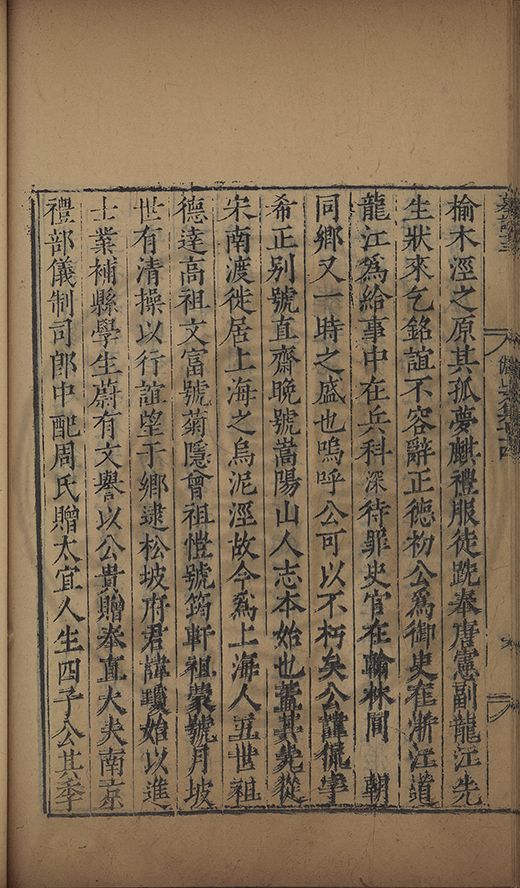 榆木涇之原其孤夢麒禮服徒跣奉唐憲副龍江先
生狀來乞銘誼不容辭正德初公爲御史在浙江道
龍江爲給事中在兵科深待罪史官在翰林間 朝
同鄉又一時之盛也嗚呼公可以不朽矣公諱侃字
希正别號直齋晚號嵩陽山人志本始也蓋其先從
宋南渡徙居上海之烏泥涇故今爲上海人五世祖
德逹高祖文富號菊隱曾祖愷號筠軒祖蒙號月坡
世有清操以行誼望于鄉逮松坡府君諱瓊始以進
士業補縣學生蔚有文譽以公貴贈奉直大夫南京
禮部儀制司郎中配周氏贈太宜人生四子公其季